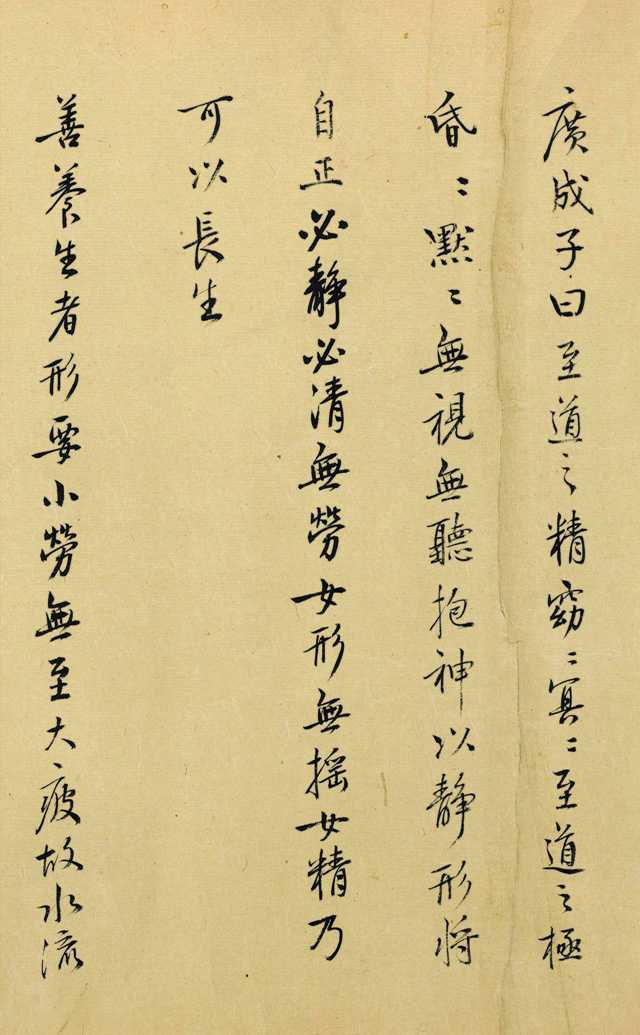 廣成子曰至道之精窈〻冥〻至道之極
昏〻默〻無視無聽抱神以靜形將
自正必靜必清無勞女形無搖女精乃
可以長生
善養生者形要小勞無至大疲故水流